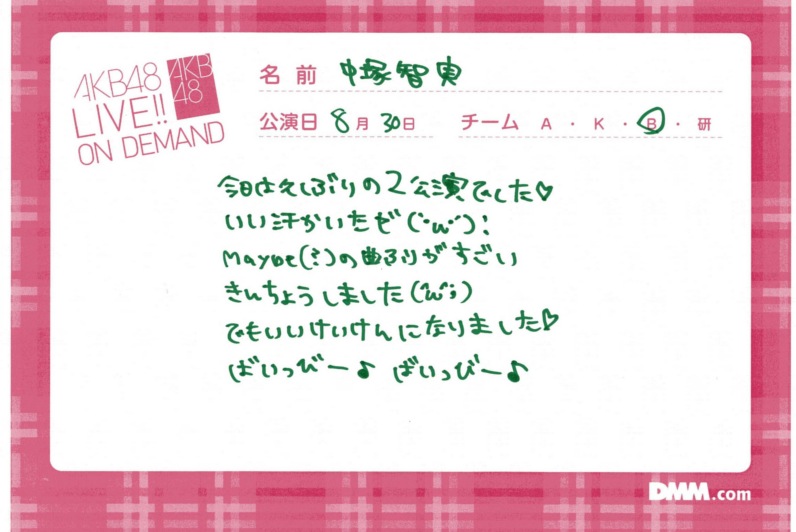 AKB48
LIVE!!
ON DEMAND
AKB
48
名前 中塚智実
公演日 8月30日 チーム A・K・B・研
今日は久しぶりの2公演でした♡
いい汗かいたぜ(´・ω・`);
Maybe(?)の曲ふりがすごい
きんちょうしました(´ω`;)
でもいいけいけんになりました♡
ばいっびー♪ ばいっびー♪
DMM.com